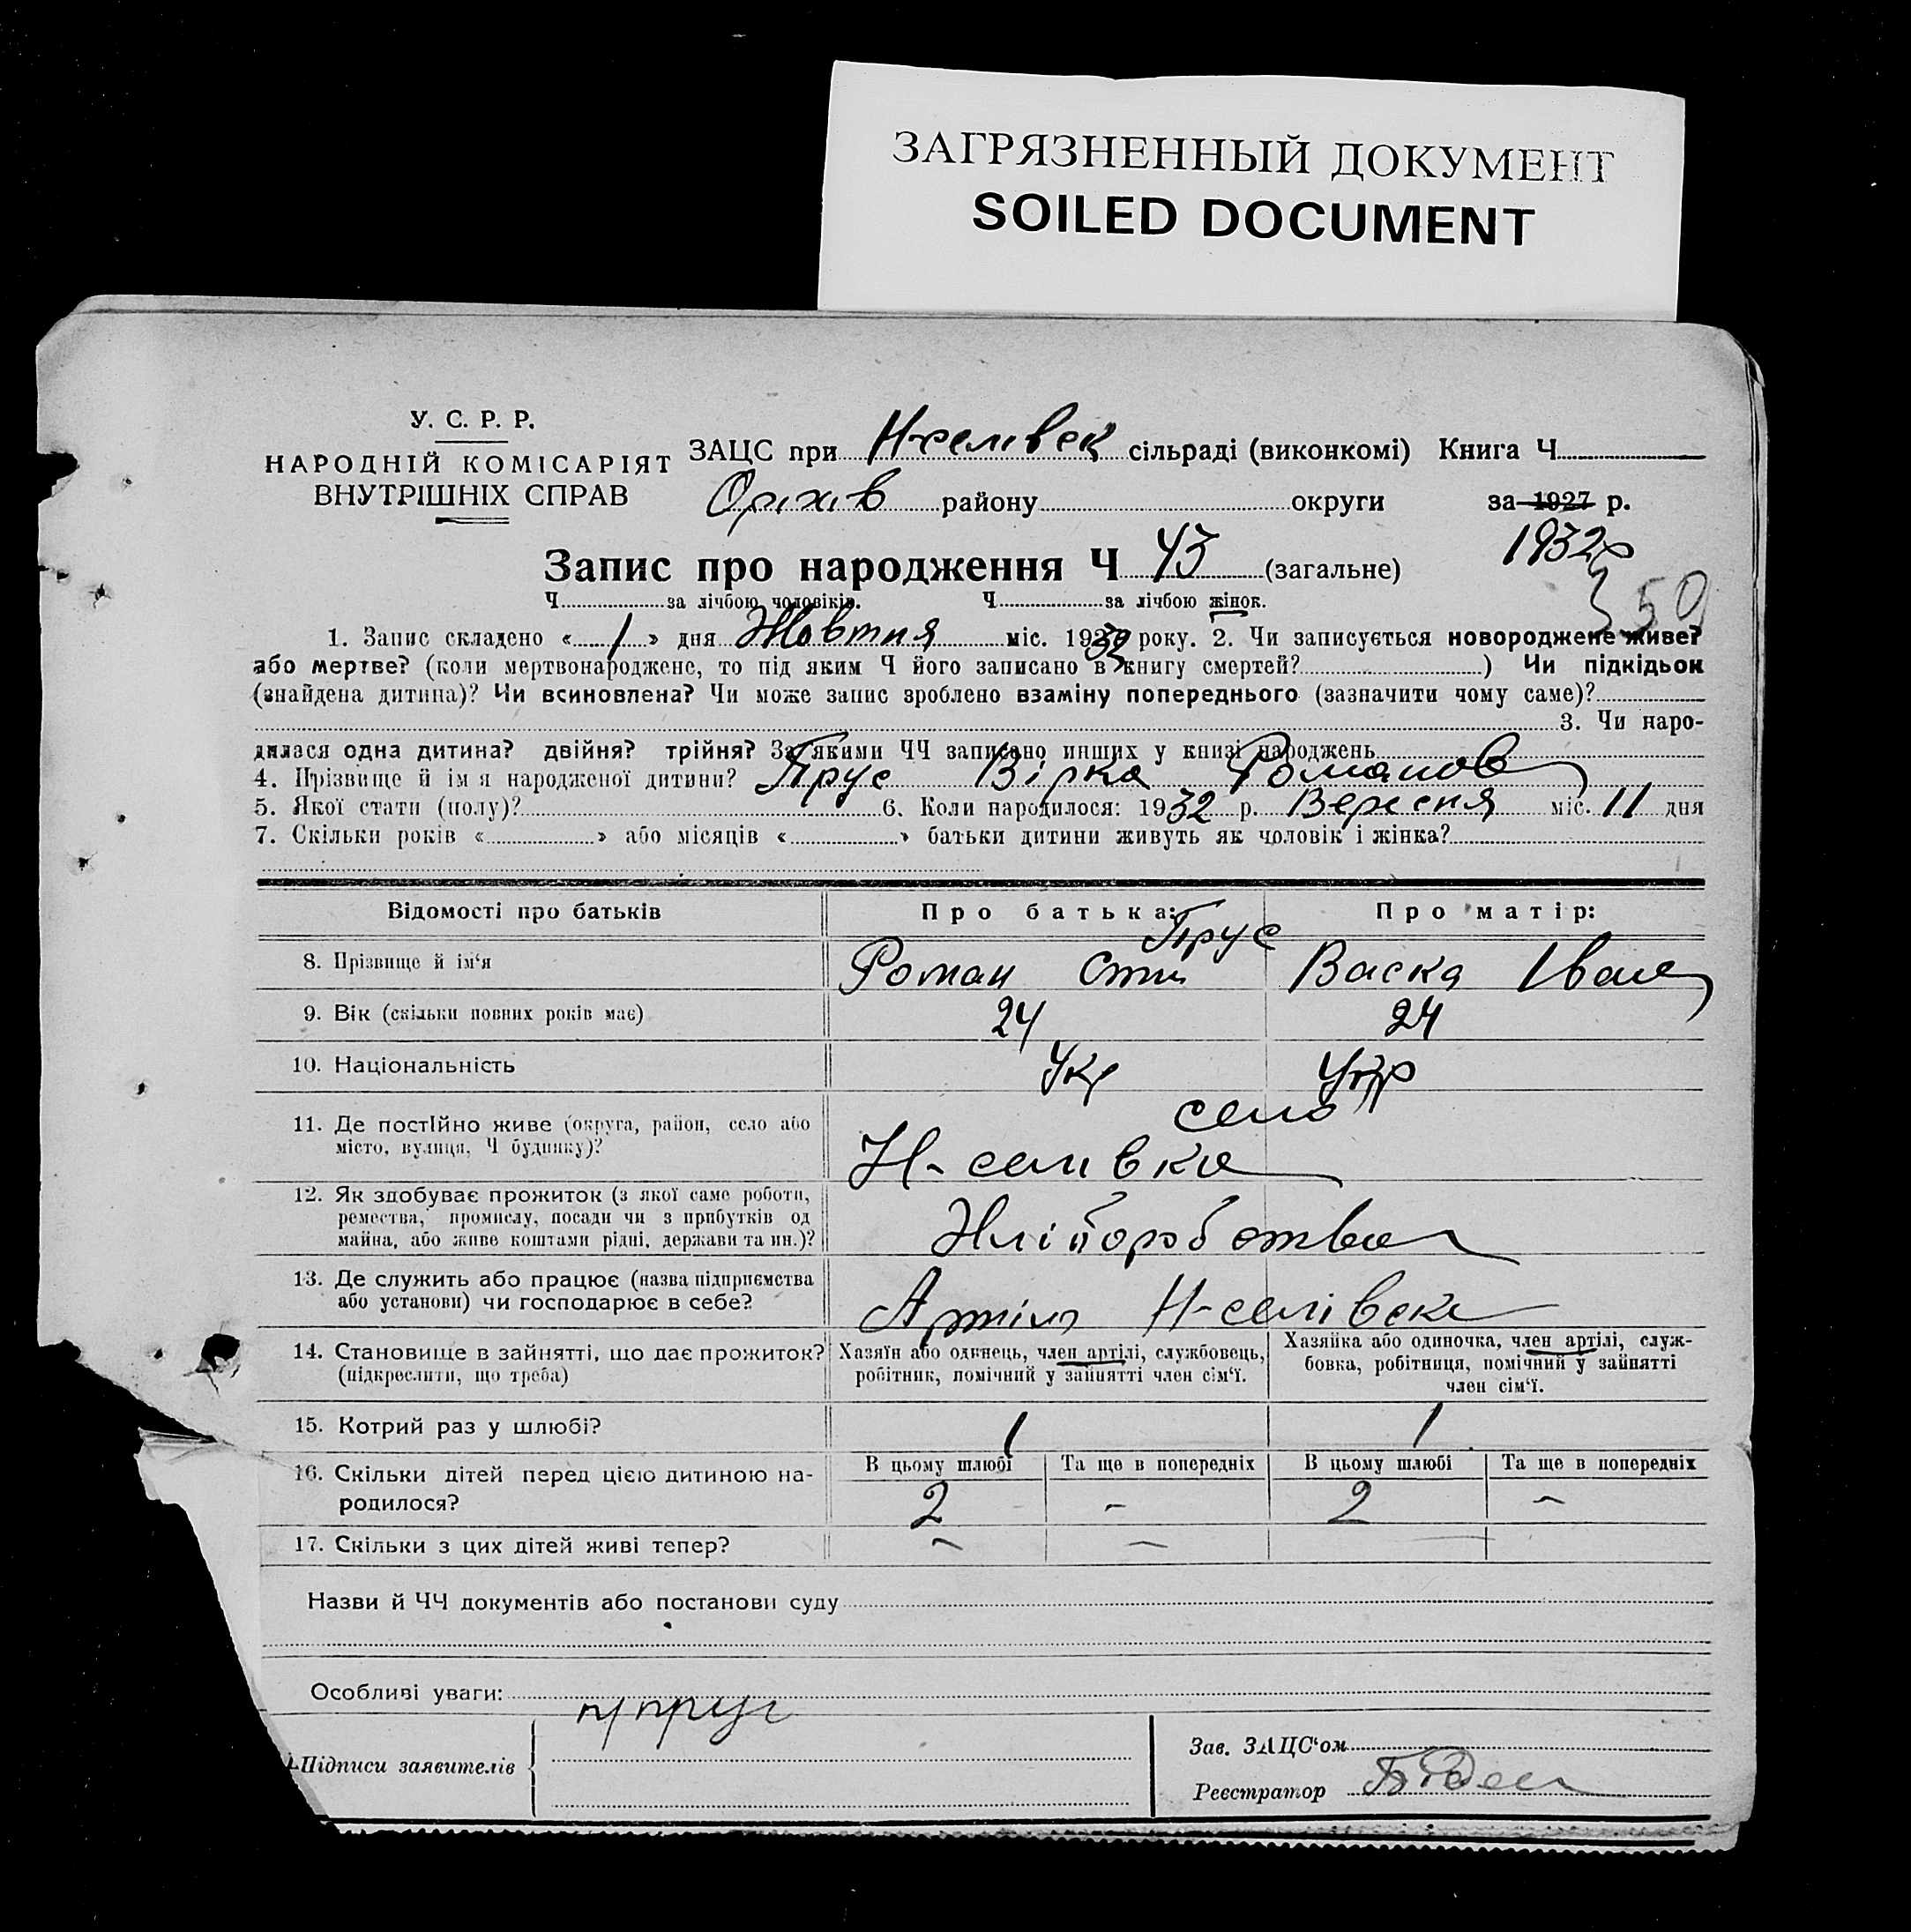 ЗАГРЯЗНЕННЫЙ ДОКУМЕНТ
SOILED DOCUMENT
У. С. Р. Р.
НАРОДНІЙ КОМІСАРІЯТ
ВНУТРІШНІХ СПРАВ
ЗАЦС при Н-селівск сільраді (виконкомі) Книга Ч
Оріхів району округи за 1927 р.
1932р
Запис про народження Ч 43 (загальне)
350
Ч за лічбою чоловіків. Ч за лічбою жінок.
1. Запис складено « 1 » дня Жовтня міс. 1932 року. 2. Чи записується новороджене живе?
або мертве? (коли мертвонароджене, то під яким Ч його записано в книгу смертей? ) Чи підкідьок
(знайдена дитина)? Чи всиновлена? Чи може запис зроблено взаміну попереднього (зазначити чому саме)?
3. Чи наро-
дилася одна дитина? двійня? трійня? За якими ЧЧ записано инших у книзі народжень
4. Прізвище й ім я народженої дитини? Прус Вірка Романов
5. Якої стати (полу)? 6. Коли народилося: 1932 р. Вересня міс. 11 дня
7. Скільки років « » або місяців « » батьки дитини живуть як чоловік і жінка?
Відомості про батьків Про батька: Про матір:
Прус
8. Прізвище й ім‘я Роман Васка Іван
9. Вік (скільки повних років має) 24 24
10. Національність Укр Укр
11. Де постійно живе (округа, район, село або
місто, вулиця, Ч будинку)?
село
Н-селивка
12. Як здобуває прожиток (з якої саме роботи,
ремества, промислу, посади чи з прибутків од
майна, або живе коштами рідні, держави та ин.)?
Хліборобства
13. Де служить або працює (назва підприємства
або установи) чи господарює в себе?
Артіль Н-селівска
14. Становище в зайнятті, що дає прожиток?
(підкреслити, що треба)
Хазяїн або одинець, член артілі, службовець,
робітник, помічний у зайнятті член сім‘ї.
Хазяйка або одиночка, член артілі, служ-
бовка, робітниця, помічний у зайнятті
член сім‘ї.
15. Котрий раз у шлюбі? 1 1
16. Скільки дітей перед цією дитиною на-
родилося?
В цьому шлюбі Та ще в попередніх В цьому шлюбі Та ще в попередніх
2 - 2 -
17. Скільки з цих дітей живі тепер? - - -
Назви й ЧЧ документів або постанови суду
Особливі уваги:
Підписи заявителів
Зав. ЗАЦС‘ом
Реєстратор